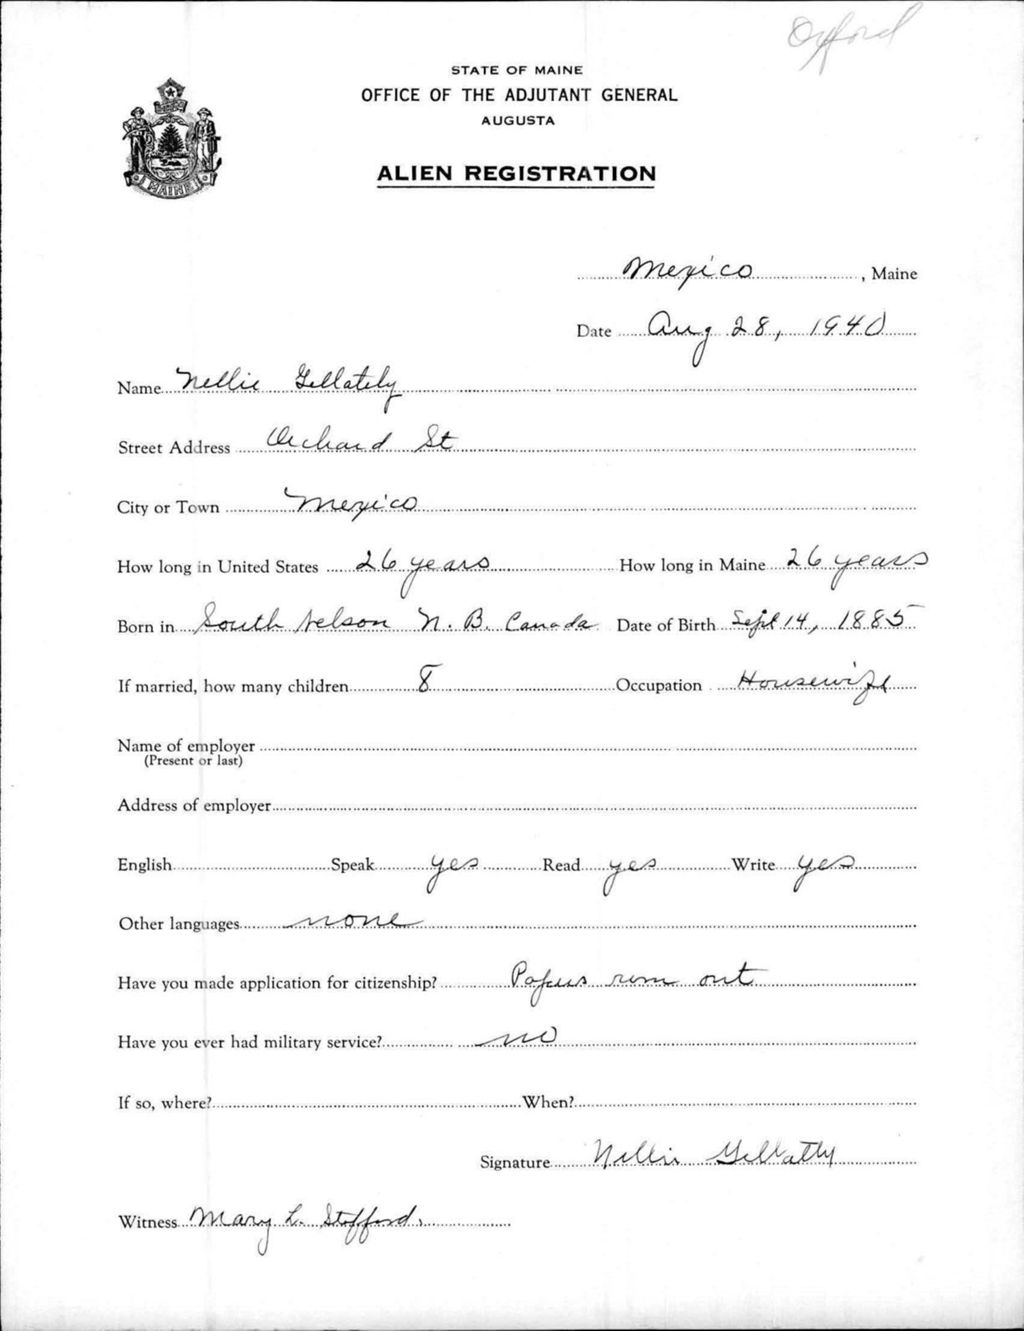 Oxford
STATE OF MAINE
OFFICE OF THE ADJUTANT GENERAL
AUGUSTA
ALIEN REGISTRATION
MAINE
Mexico, Maine
Date Aug 28, 1940
Name Nellie Gellately
Street Address Orchard St
City or Town Mexico
How long in United States 26 years How long in Maine 26 years
Born in South Nelson N. B. Canada Date of Birth Sept 14, 1885
If married, how many children 8 Occupation Housewife
Name of employer
(Present or last)
Address of employer
English Speak yes Read yes Write yes
Other languages none
Have you made application for citizenship? Papers run out
Have you ever had military service? no
If so, where? When?
Signature Nellie Gellatly
Witness Mary L. Stofford.